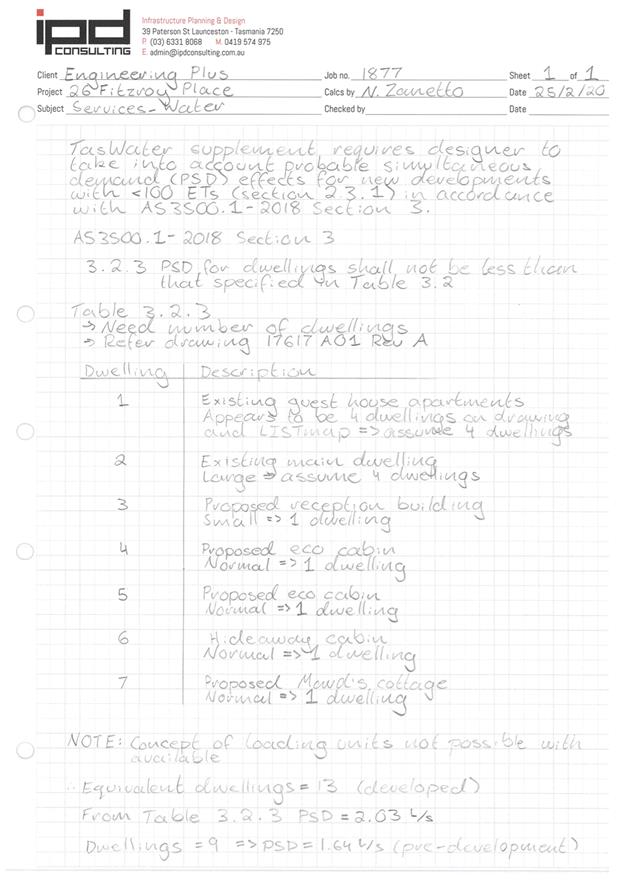 ipd
CONSULTING
Infrastructure Planning & Design
39 Paterson St Launceston - Tasmania 7250
P. (03) 6331 8068 M. 0419 574 975
E. admin@ipdconsulting.com.au
Client Engineering Plus Job no. 1877 Sheet 1 of 1
Project 26 Fitzroy Place Calcs by N. Zanetto Date 25/2/20
Subject Services-Water Checked by Date
TasWater supplement requires designer to
take into account probable simultaneous
demand (PSD) effects for new developments
with <100 ETs (section 2.3.1) in accordance
with AS3500.1-2018 Section 3.
AS3500.1-2018 Section 3
3.2.3 PSD for dwellings shall not be less than
that specified in Table 3.2
Table 3.2.3
→ Need number of dwellings
→ Refer drawing 17617 A01 Rev A
Dwelling Description
1 Existing guest house apartments
Appears to be 4 dwellings on drawing
and LISTmap => assume 4 dwellings
2 Existing main dwelling
Large → assume 4 dwellings
3 Proposed reception building
Small => 1 dwelling
4 Proposed eco cabin
Normal => 1 dwelling
5 Proposed eco cabin
Normal => 1 dwelling
6 Hideaway cabin
Normal => 1 dwelling
7 Proposed Mawd's cottage
Normal => 1 dwelling
NOTE: Concept of loading units not possible with
available
∴ Equivalent dwellings = 13 (developed)
From Table 3.2.3 PSD = 2.03 L/s
Dwellings = 9 => PSD = 1.64 L/s (pre-development)